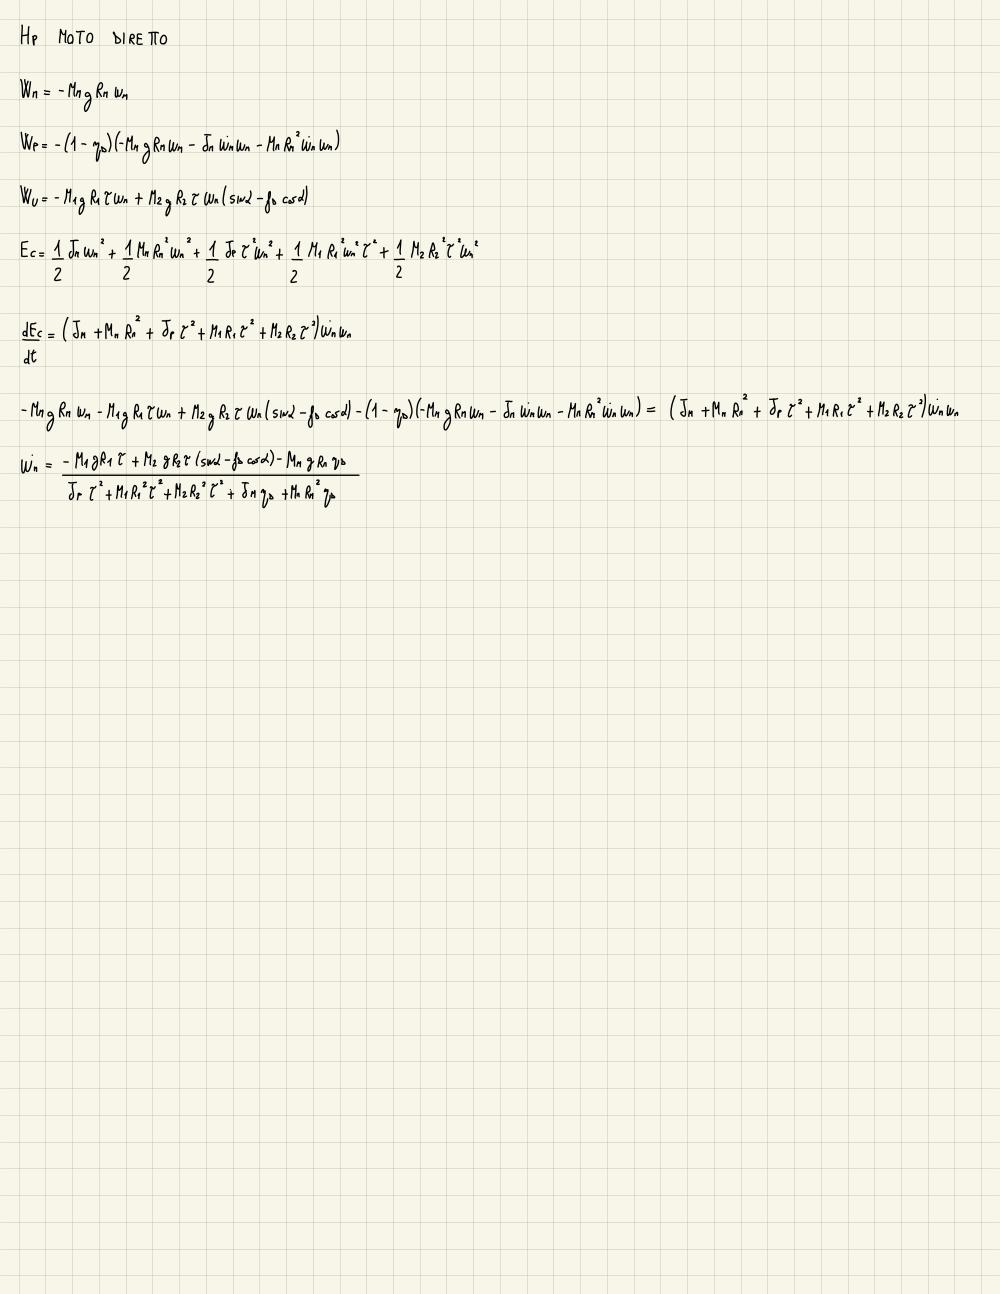 Hp MOTO DIRETTO
Wm = -Mm g Rm ωm
Wp = -(1 - ηD)(-Mm g Rm ωm - Jm ω̇m ωm - Mm Rm² ω̇m ωm)
WU = -M1 g R1 τ ωm + M2 g R2 τ ωm (sinα - fD cosα)
Ec = 1/2 Jm ωm² + 1/2 Mm Rm² ωm² + 1/2 Jp τ² ωm² + 1/2 M1 R1² ωm² τ² + 1/2 M2 R2² τ² ωm²
dEc/dt = (Jm + Mm Rm² + Jp τ² + M1 R1 τ² + M2 R2 τ²) ω̇m ωm
-Mm g Rm ωm - M1 g R1 τ ωm + M2 g R2 τ ωm (sinα - fD cosα) - (1 - ηD)(-Mm g Rm ωm - Jm ω̇m ωm - Mm Rm² ω̇m ωm) = (Jm + Mm Rm² + Jp τ² + M1 R1 τ² + M2 R2 τ²) ω̇m ωm
ω̇m = -M1 g R1 τ + M2 g R2 τ (sinα - fD cosα) - Mm g Rm ηD
Jp τ² + M1 R1² τ² + M2 R2² τ² + Jm ηD + Mm Rm² ηD